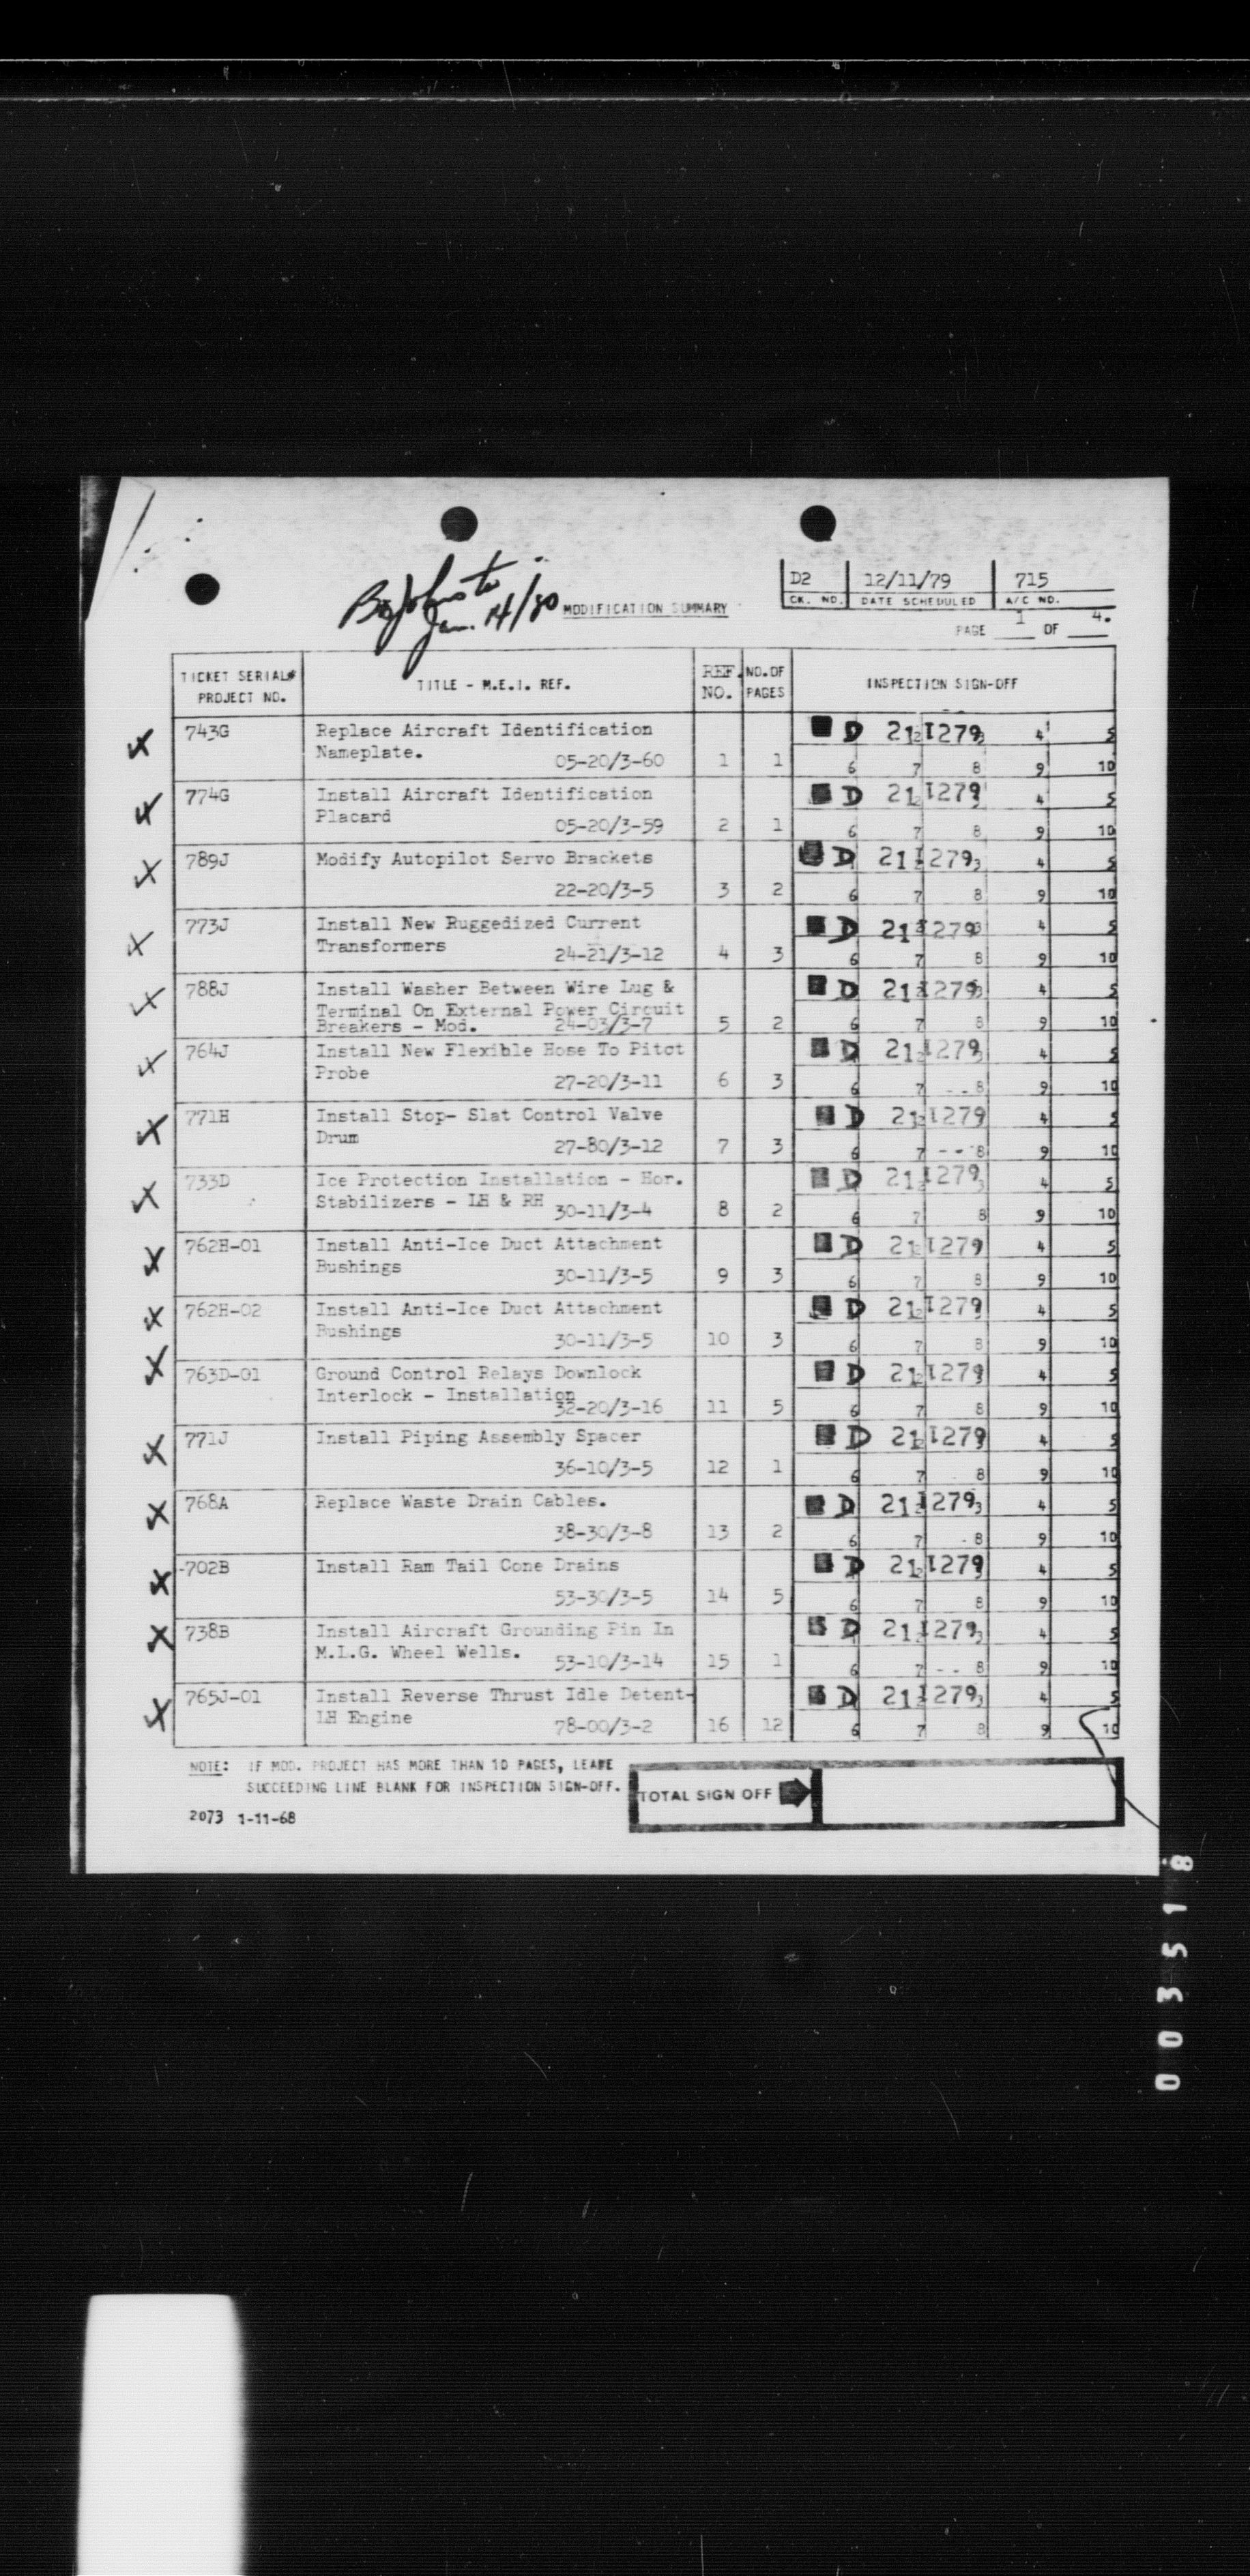 D2 12/11/79 715
CK. NO. DATE SCHEDULED A/C NO.
Jan. 14/80 MODIFICATION SUMMARY
PAGE 1 OF 4.
TICKET SERIAL# PROJECT NO. TITLE - M.E.I. REF. REF. NO. NO.OF PAGES INSPECTION SIGN-OFF
743G Replace Aircraft Identification D 211279 4 5
Nameplate. 05-20/3-60 1 1 6 7 8 9 10
774G Install Aircraft Identification D 211279 4 5
Placard 05-20/3-59 2 1 6 7 8 9 10
789J Modify Autopilot Servo Brackets D 211279 3 4 5
22-20/3-5 3 2 6 7 8 9 10
773J Install New Ruggedized Current D 211279 3 4 5
Transformers 24-21/3-12 4 3 6 7 8 9 10
788J Install Washer Between Wire Lug & D 211279 3 4 5
Terminal On External Power Circuit
Breakers - Mod. 24-03/3-7 5 2 6 7 8 9 10
764J Install New Flexible Hose To Pitot D 211279 4 5
Probe 27-20/3-11 6 3 6 7 8 9 10
771H Install Stop- Slat Control Valve D 211279 4 5
Drum 27-80/3-12 7 3 6 7 8 9 10
733D Ice Protection Installation - Hor. D 211279 3 4 5
Stabilizers - LH & RH 30-11/3-4 8 2 6 7 8 9 10
762H-01 Install Anti-Ice Duct Attachment D 211279 4 5
Bushings 30-11/3-5 9 3 6 7 8 9 10
762H-02 Install Anti-Ice Duct Attachment D 211279 4 5
Bushings 30-11/3-5 10 3 6 7 8 9 10
763D-01 Ground Control Relays Downlock D 211279 4 5
Interlock - Installation
32-20/3-16 11 5 6 7 8 9 10
771J Install Piping Assembly Spacer D 211279 4 5
36-10/3-5 12 1 6 7 8 9 10
768A Replace Waste Drain Cables. D 211279 3 4 5
38-30/3-8 13 2 6 7 8 9 10
-702B Install Ram Tail Cone Drains D 211279 4 5
53-30/3-5 14 5 6 7 8 9 10
738B Install Aircraft Grounding Pin In D 211279 3 4 5
M.L.G. Wheel Wells. 53-10/3-14 15 1 6 7 8 9 10
765J-01 Install Reverse Thrust Idle Detent- D 211279 3 4 5
LH Engine 78-00/3-2 16 12 6 7 8 9 10
NOTE: IF MOD. PROJECT HAS MORE THAN 10 PAGES, LEAVE
SUCCEEDING LINE BLANK FOR INSPECTION SIGN-OFF.
TOTAL SIGN OFF
2073 1-11-68
003518